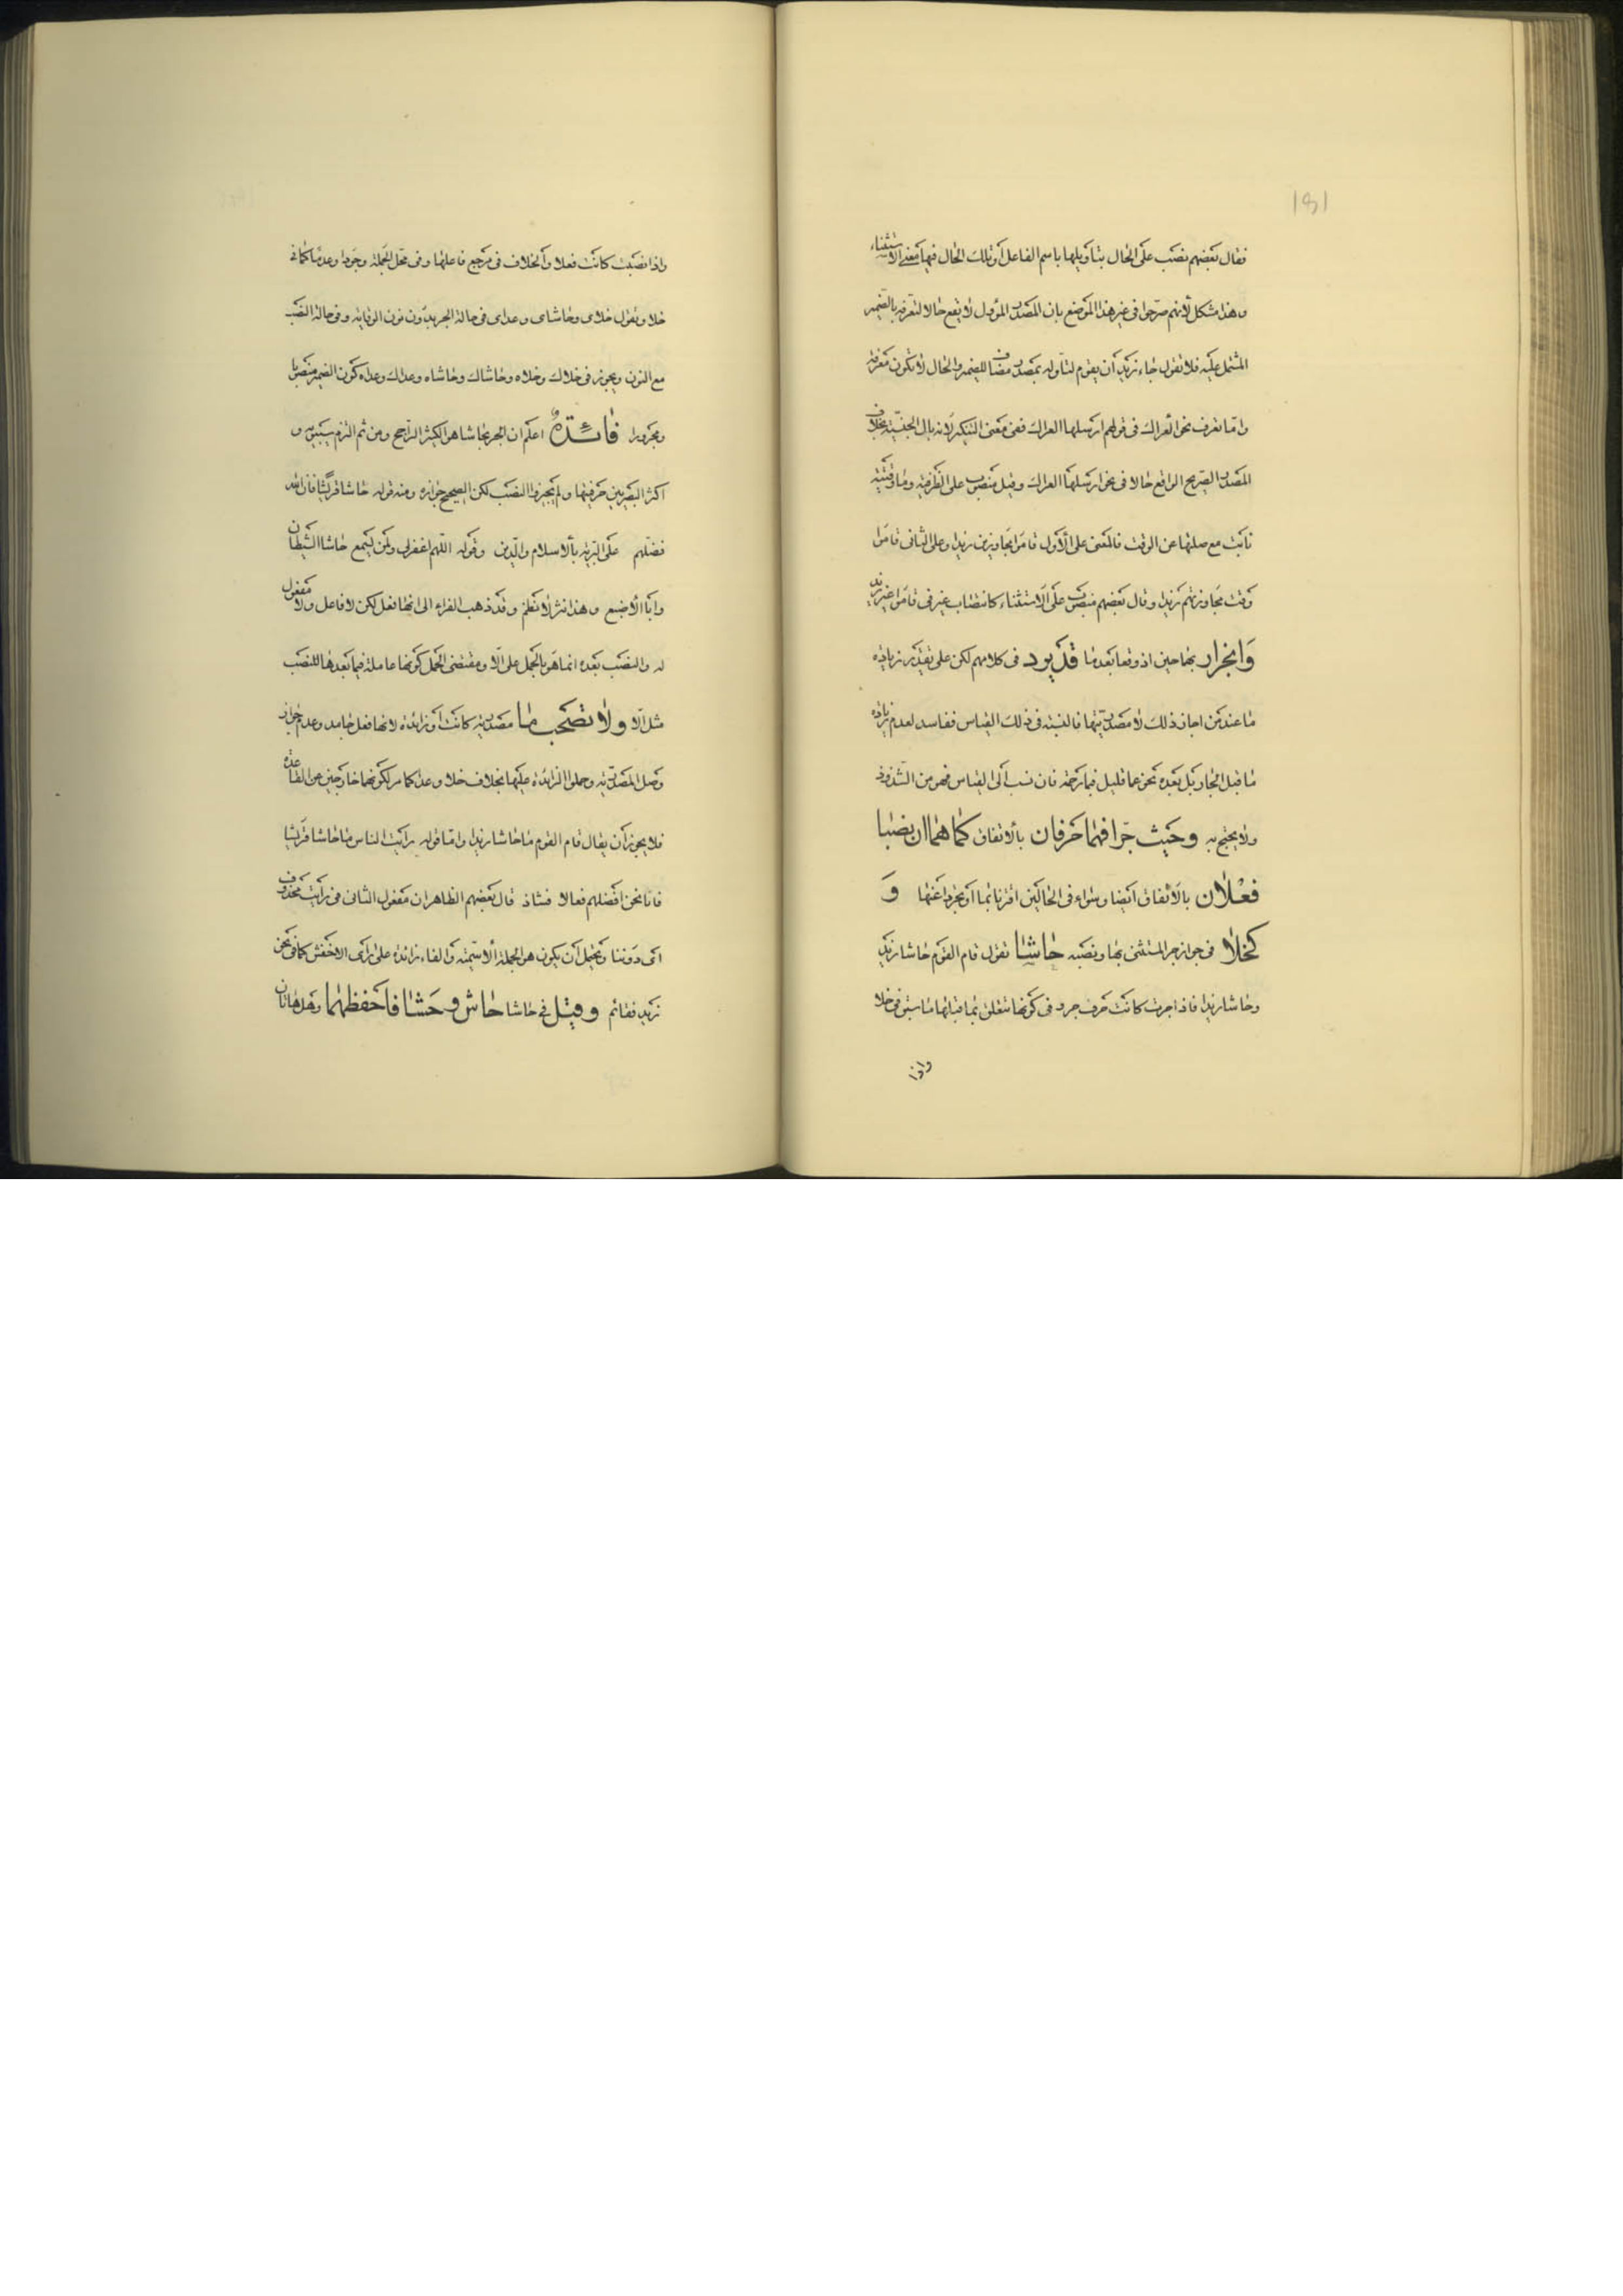 181
فقال بعضهم نصب على الحال بتاويلها باسم الفاعل او تلك الحال فيها معنى الاستثناء
وهذا مشكل لانهم صرحوا فى غير هذا الموضع بان المصدر المؤول لا يقع حالا لتعرفه بالضمير
المشتمل عليه فلا تقول جاء زيد أن يقوم لتأوله بمصدر مضاف للضمير والحال لا تكون معرفة
واما تعرف نحو العراك فى قولهم ارسلها العراك فهى معنى التنكير لانه بال الجنسية بخلاف
المصدر الصريح الواقع حالا فى نحو ارسلها العراك وقيل منصوب على الظرفية وما وقتية
نابت مع صلتها عن الوقت فالمعنى على الأول قاموا مجاوزين زيدا وعلى الثانى قاموا
وقت مجاوزتهم زيدا وقال بعضهم منصوب على الاستثناء كانتصاب غير فى قاموا غير زيد
وانجرار بهما حين اذ وقعا بعد ما قد يرد فى كلامهم لكن على تقدير زيادة
ما عند من اجاز ذلك لا مصدريتها فالنسبة فى ذلك القياس ففاسد لعدم زيادة
ما قبل الجار بل بعده نحو عما قليل فبما رحمة فان نسب الى القياس فهو من الشذوذ
ولا يحتج به وحيث جرا فهما حرفان بألاتفاق كما هما ان نصبا
فعلان بالاتفاق ايضا وسواء فى الحالين اقترنا بما أو تجردا عنها و
كخلا فى جواز جر المستثنى بها ونصبه حاشا تقول قام القوم حاشا زيد
وحاشا زيدا فاذا جرت كانت حرف جر وفى كونها تتعلق بما قبلها ما سبق فى خلا
واذا
واذا نصبت كانت فعلا والخلاف فى مرجع فاعلها وفى محل الجملة وجودا وعدما كما فى
خلا وتقول خلاى وحاشاى وعداى فى حالة الجر بدون نون الوقاية وفى حالة النصب
مع النون ويجوز فى خلاك وخلاه وحاشاك وحاشاه وعداك وعداه كون الضمير منصوبا
ومجرورا فائدة اعلم ان الجر بحاشا هو الكثير الراجح ومن ثم التزم سيبويه و
اكثر البصريين حرفيتها ولم يجيزوا النصب لكن الصحيح جوازه ومنه قوله حاشا قريشا فان الله
فضلهم على البرية بألاسلام والدين وقوله اللهم اغفر لى ولمن يسمع حاشا الشيطان
وابا الاصبع وهذا نثر لا نظم وقد ذهب الفراء الى انها فعل لكن لا فاعل ولا مفعول
له والنصب بعده انما هو بالحمل على الا ومقتضى الحمل كونها عاملة فيما بعدها للنصب
مثل الا ولا تصحب ما مصدرية كانت أو زائدة لانها فعل جامد وعدم جواز
وصل المصدرية وحملوا الزائدة عليها بخلاف خلا وعدا كما مر لكونهما خارجين عن القاعدة
فلا يجوز أن يقال قام القوم ما حاشا زيدا واما قوله رأيت الناس ما حاشا قريشا
فانا نحن افضلهم فعالا فشاذ قال بعضهم الظاهر ان مفعول الثانى فى رأيت محذوف
اى دوننا ويحتمل أن يكون هو الجملة الاسمية والفاء زائدة على رأى الاخفش كما فى نحو
زيد فقائم وقيل فى حاشا حاش وحشا فاحفظهما وهل هاتان